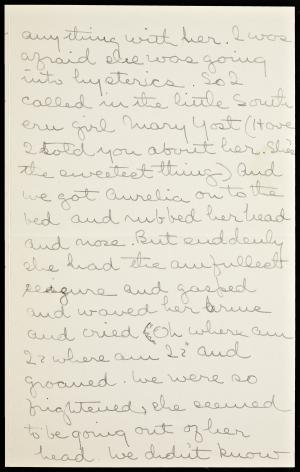 anything with her. I was
afraid she was going
into hysterics. So I
called in the little South
ern girl Mary Yost (Have
I told you about her. She's
the sweetest thing) And
we got Aurelia on to the
bed and rubbed her head
and nose. But suddenly
she had the awfullest
seizure and gasped
and waved her arms
and cried "Oh where am
I? where am I?" and
groaned. We were so
frightened, she seemed
to be going out of her
head. We didn't know